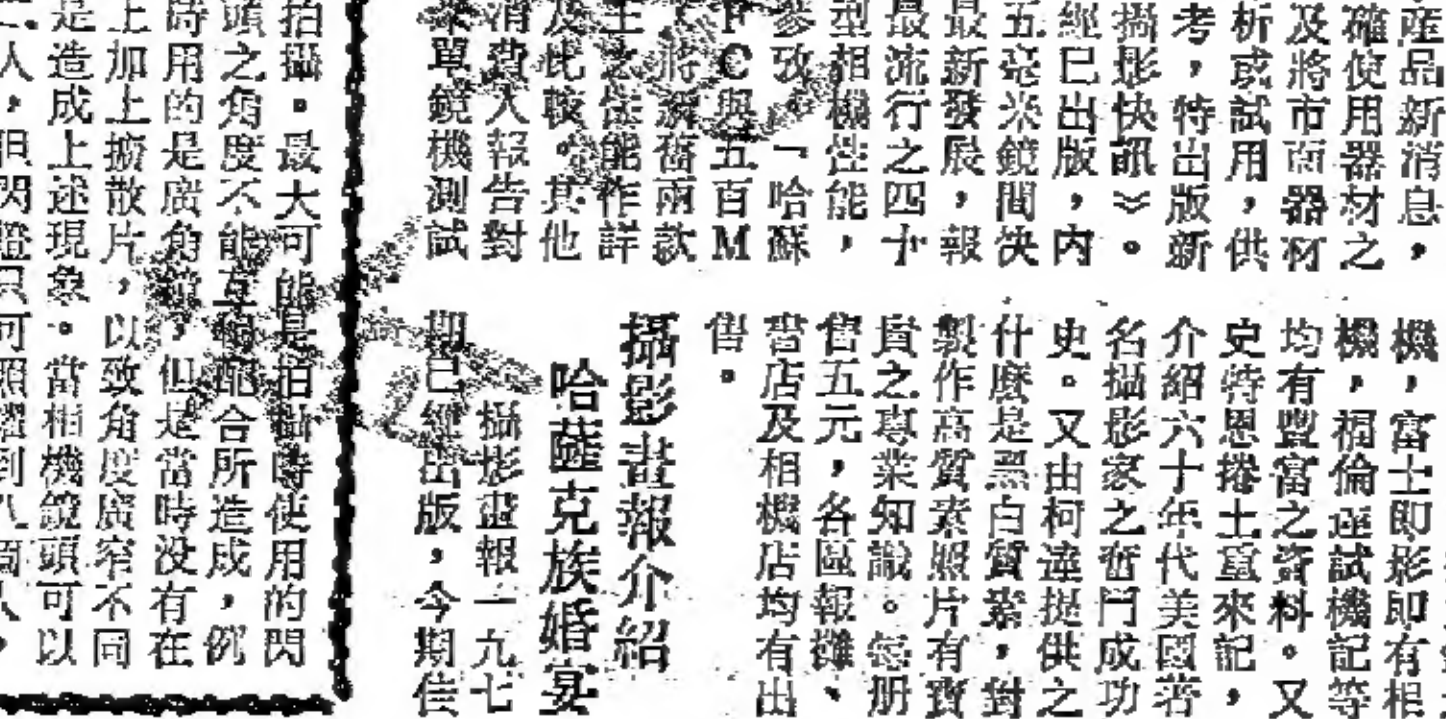 產品新消息，
確使用器材之
及將市面器材
析或試用，供
考，特出版新
攝影快訊》。
經已出版，內
五毫米鏡間快
最新發展，報
最流行之四十
型相機性能，
參攷。「哈蘇
FC與五百M
將新舊兩款
之性能作詳
及比較。其他
消費人報告對
單鏡機測試
機，富士即影即有相
機，福倫達試機記等
均有豐富之資料。又
史特恩捲土重來記，
介紹六十年代美國著
名攝影家之奮鬥成功
史。又由柯達提供之
什麼是黑白質素，對
製作高質素照片有寶
貴之專業知識。每册
售五元，各區報攤、
書店及相機店均有出
售。
攝影畫報介紹
哈薩克族婚宴
攝影畫報一九七
期已經出版，今期佳
拍攝。最大可能是拍攝時使用的閃
頭之角度不能互相配合所造成，例
時用的是廣角鏡，但是當時没有在
上加上擴散片，以致角度廣窄不同
是造成上述現象。當相機鏡頭可以
人，但閃燈只可照耀到八個人，